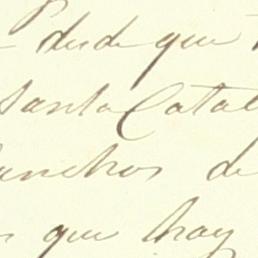 desde que
Santa Catal
anchos de
que hay